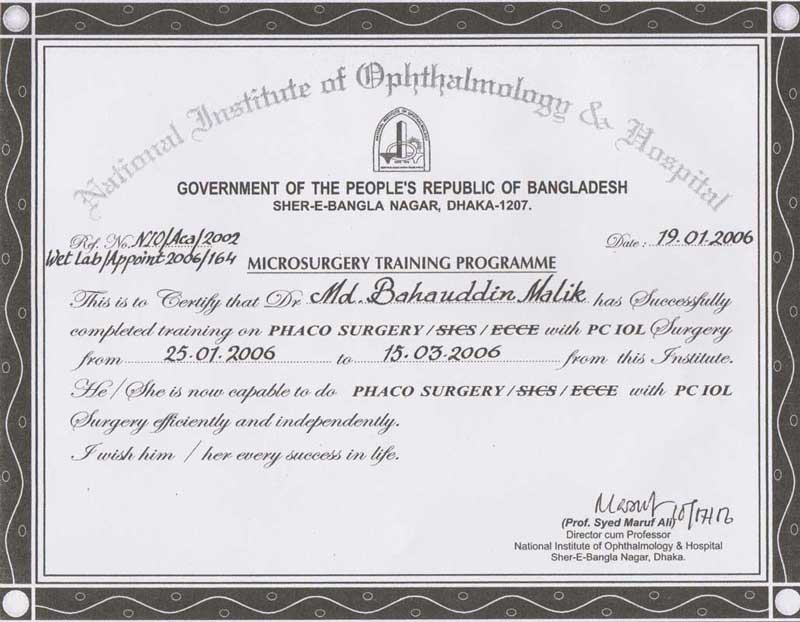 National Institute of Ophthalmology & Hospital
GOVERNMENT OF THE PEOPLE'S REPUBLIC OF BANGLADESH
SHER-E-BANGLA NAGAR, DHAKA-1207.
Ref. No. NIO/Aca/2002
Wet Lab/Appoint 2006/164
Date : 19.01.2006
MICROSURGERY TRAINING PROGRAMME
This is to Certify that Dr Md. Bahauddin Malik has Successfully
completed training on PHACO SURGERY / SICS / ECCE with PC IOL Surgery
from 25.01.2006 to 15.03.2006 from this Institute.
He / She is now capable to do PHACO SURGERY / SICS / ECCE with PC IOL
Surgery efficiently and independently.
I wish him / her every success in life.
(Prof. Syed Maruf Ali)
Director cum Professor
National Institute of Ophthalmology & Hospital
Sher-E-Bangla Nagar, Dhaka.